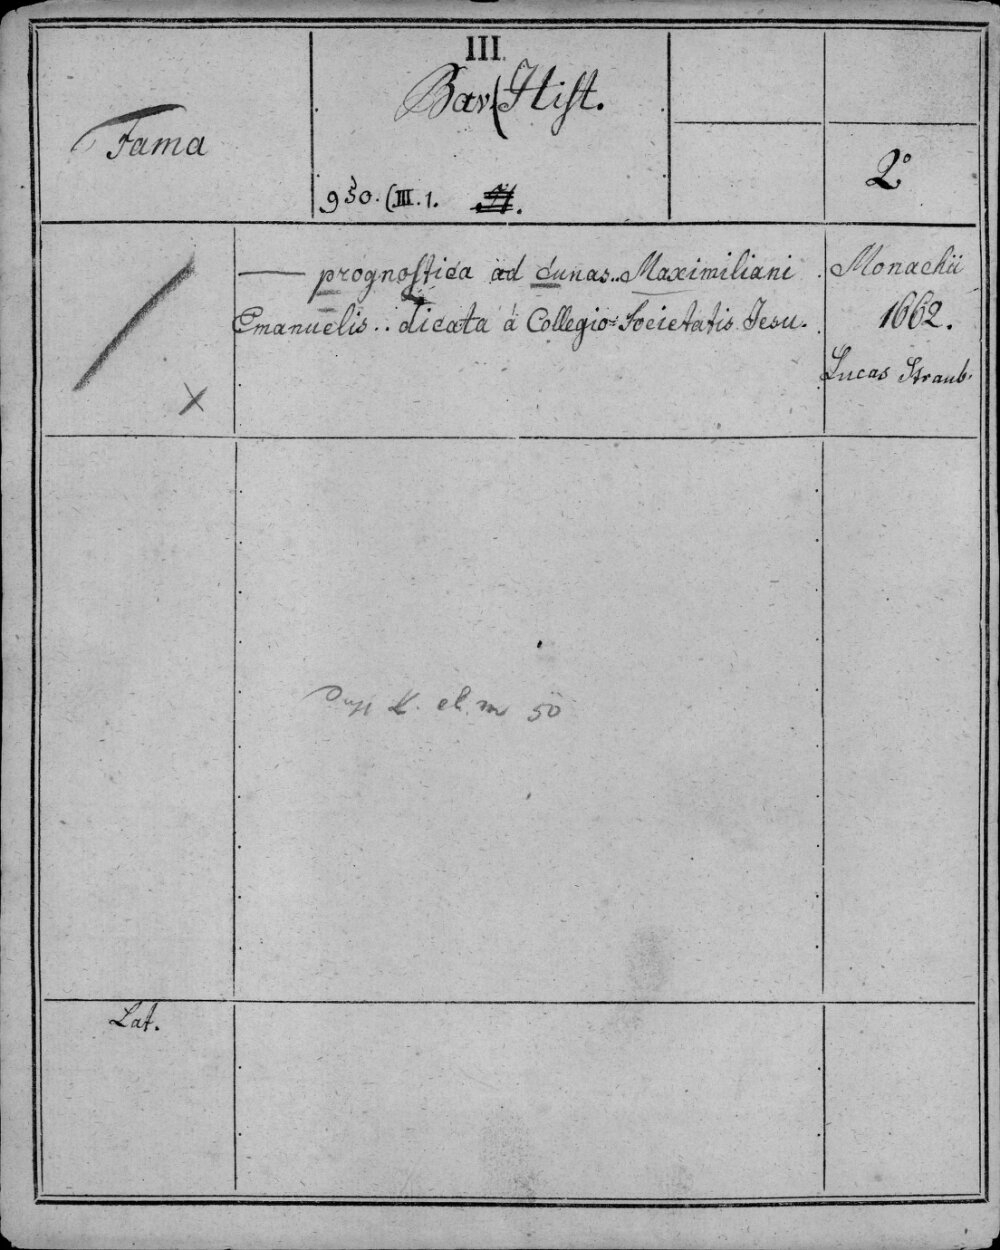 III.
Bav. Hist.
Fama
2°
950. (III. 1.
— prognostica ad cunas.. Maximiliani
Emanuelis.. dicata á Collegio Societatis Jesu.
Monachii
1662.
Lucas Straub.
50
Lat.